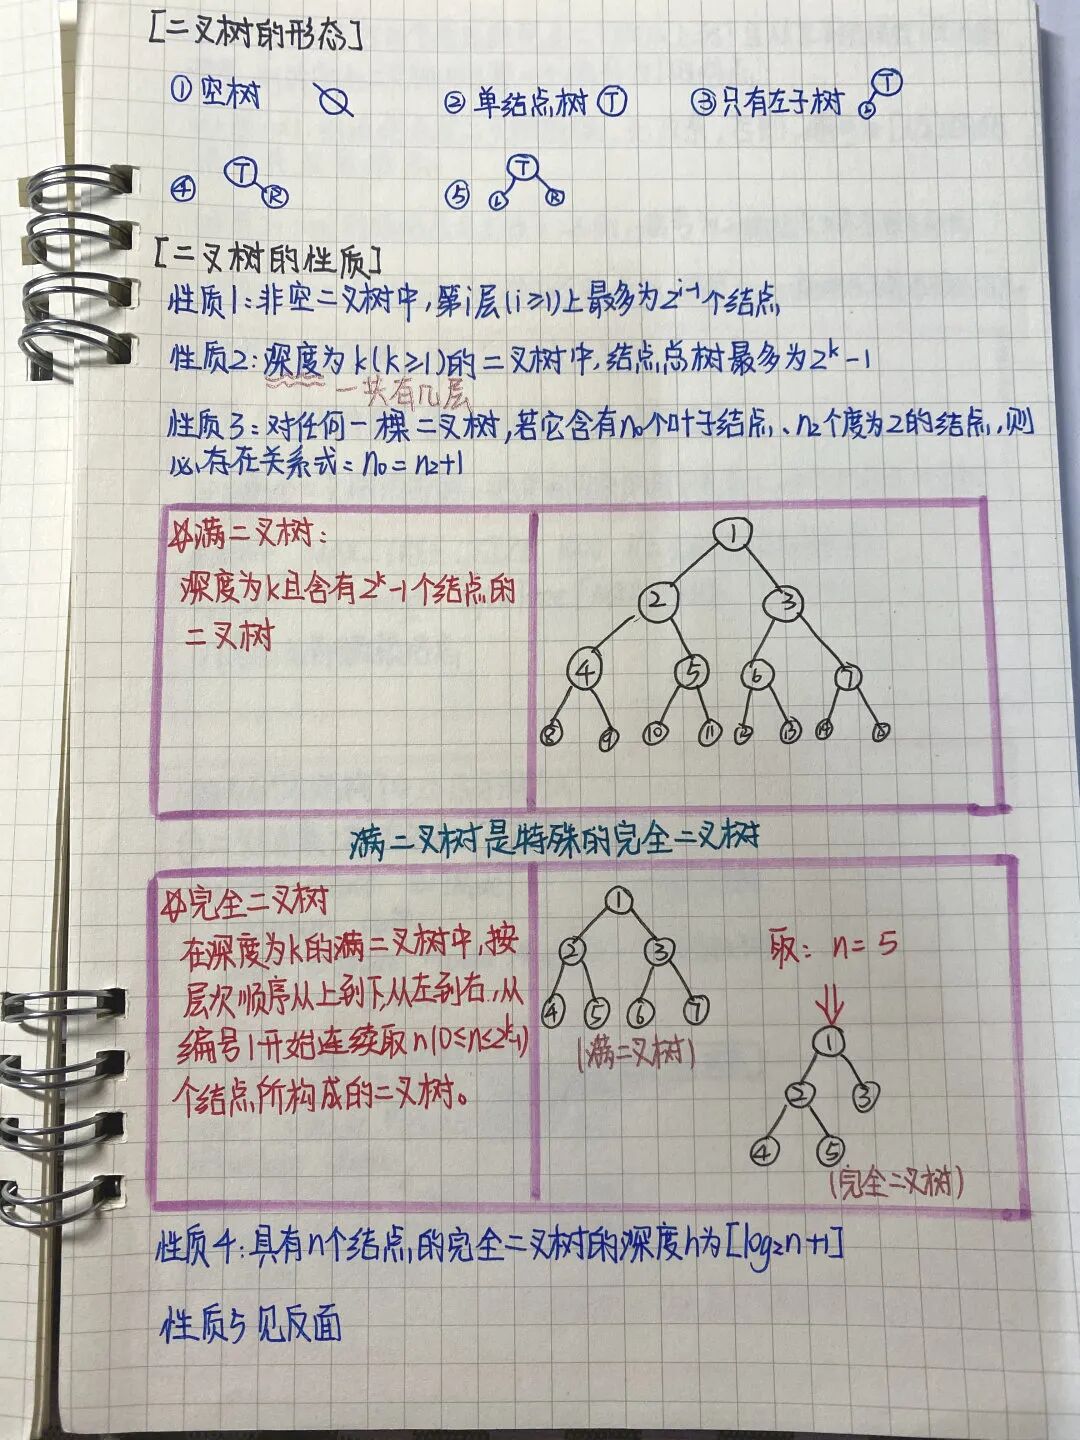 [二叉树的形态]
① 空树
② 单结点树 T
③ 只有左子树 T L
④ T R
⑤ T L R
[二叉树的性质]
性质1:非空二叉树中,第i层(i≥1)上最多为2^{i-1}个结点
性质2:深度为k(k≥1)的二叉树中,结点总树最多为2^k-1
一共有几层
性质3:对任何一棵二叉树,若它含有n₀个叶子结点、n₂个度为2的结点,则
必存在关系式:n₀=n₂+1
满二叉树:
深度为k且含有2^k-1个结点的
二叉树
1
2 3
4 5 6 7
8 9 10 11 12 13 14 15
满二叉树是特殊的完全二叉树
完全二叉树
在深度为k的满二叉树中,按
层次顺序从上到下从左到右,从
编号1开始连续取n(0≤n≤2^k-1)
个结点所构成的二叉树。
1
2 3
4 5 6 7
(满二叉树)
取: n=5
1
2 3
4 5
(完全二叉树)
性质4:具有n个结点的完全二叉树的深度h为[log₂n+1]
性质5见反面